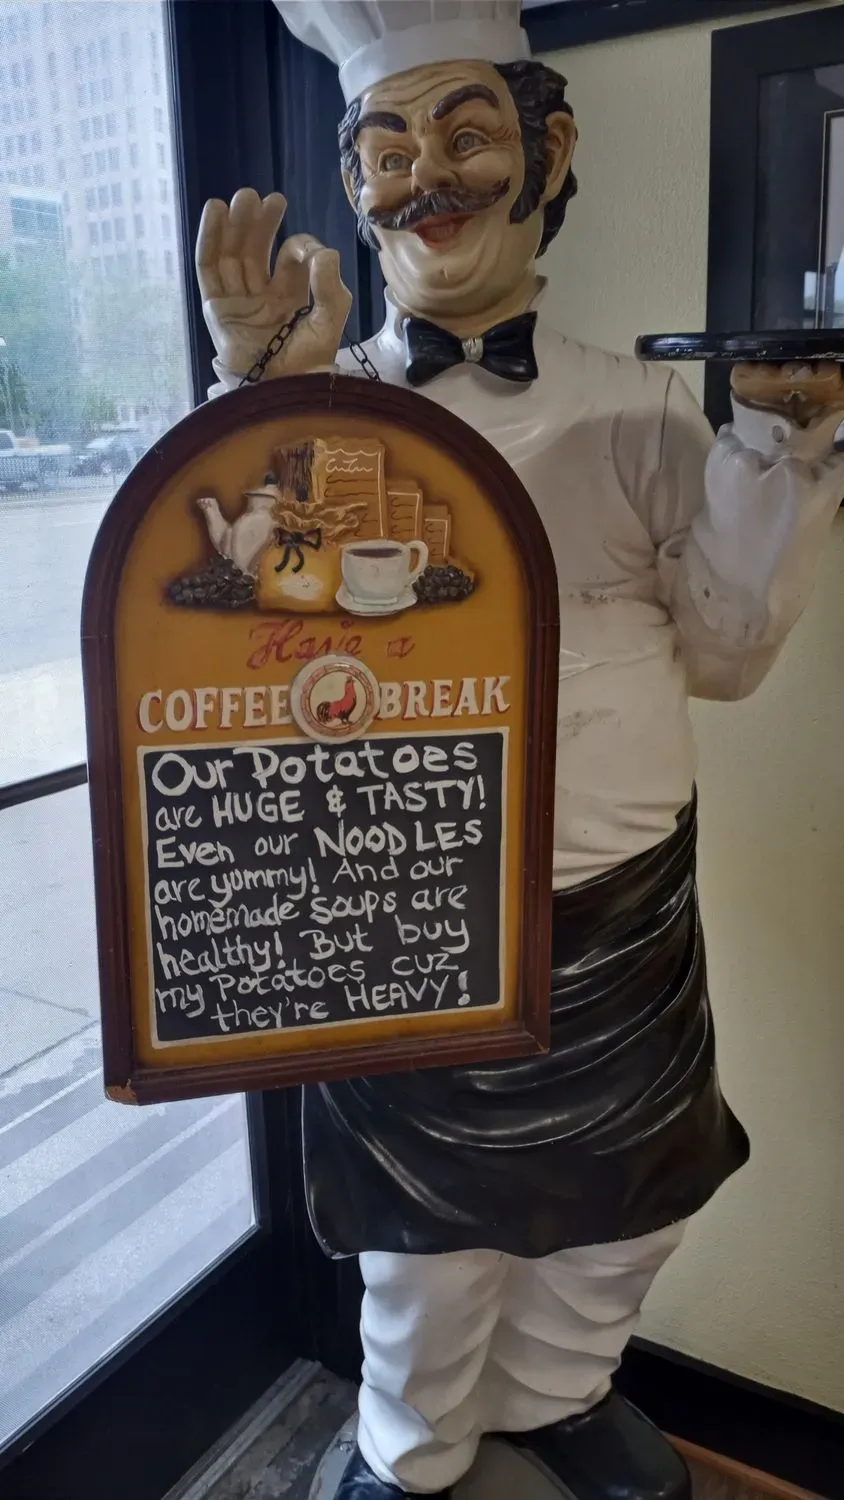 Have a
COFFEE BREAK
Our Potatoes
are HUGE & TASTY!
Even our NOODLES
are yummy! And our
homemade soups are
healthy! But buy
my Potatoes cuz
they're HEAVY!